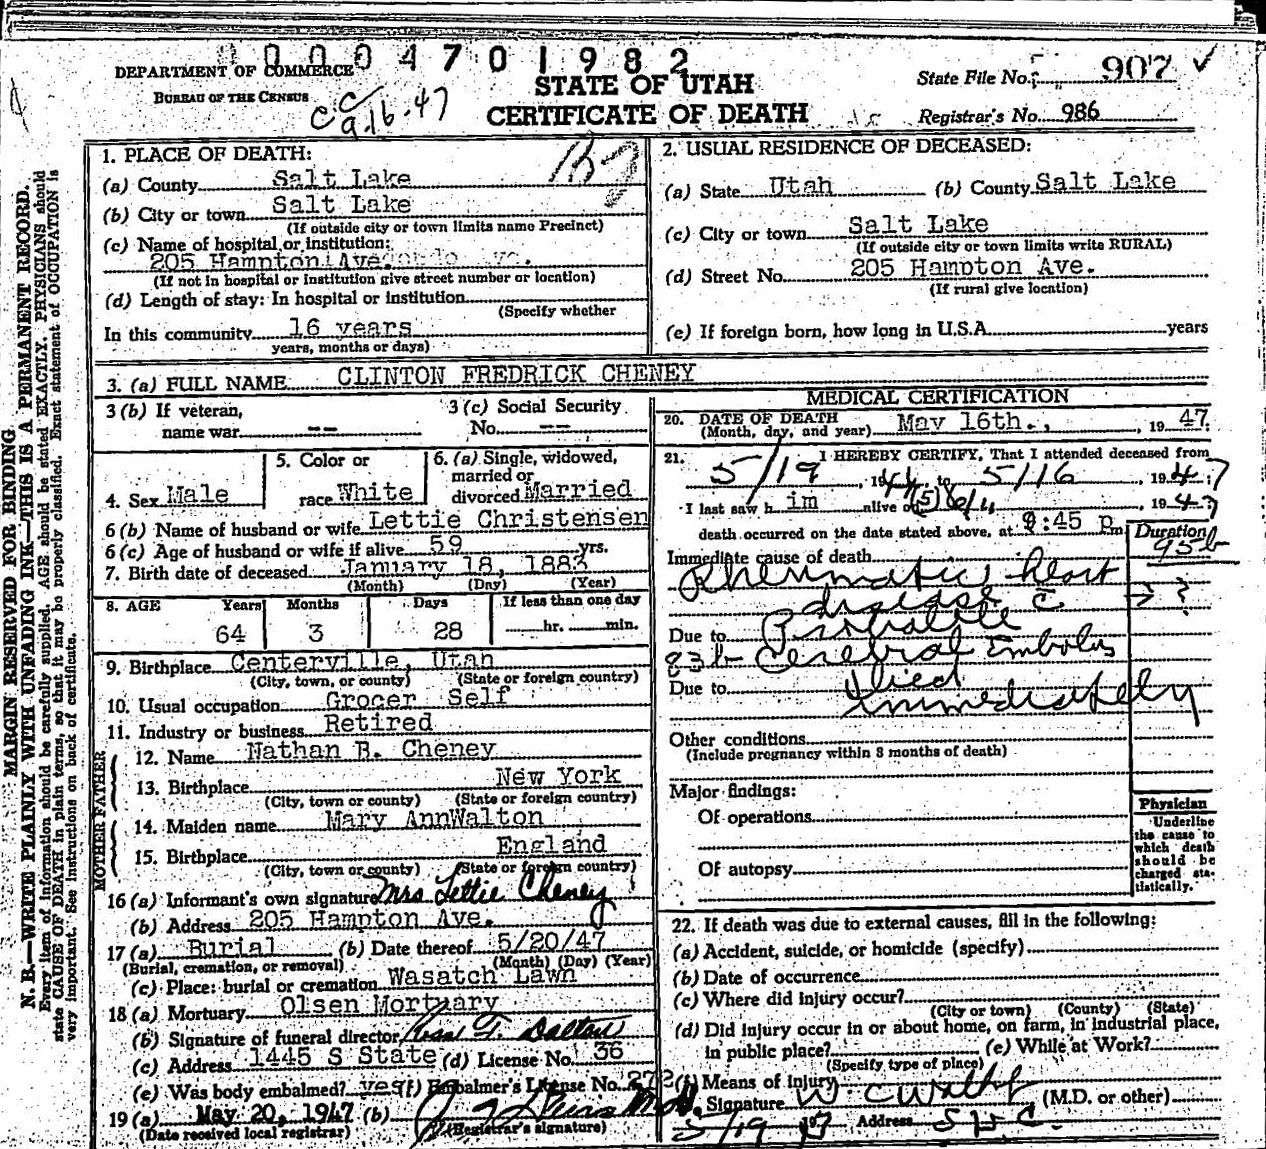 00004701982
DEPARTMENT OF COMMERCE
BUREAU OF THE CENSUS
STATE OF UTAH
CERTIFICATE OF DEATH
State File No. 907 ✓
Registrar's No. 986
C C
9-16-47
MARGIN RESERVED FOR BINDING
N. B.—WRITE PLAINLY WITH UNFADING INK—THIS IS A PERMANENT RECORD.
Every item of information should be carefully supplied. AGE should be stated EXACTLY. PHYSICIANS should
state CAUSE OF DEATH in plain terms, so that it may be properly classified. Exact statement of OCCUPATION is
very important. See instructions on back of certificate.
1. PLACE OF DEATH:
(a) County Salt Lake
(b) City or town Salt Lake
(If outside city or town limits name Precinct)
(c) Name of hospital or institution:
205 Hampton Ave.
(If not in hospital or institution give street number or location)
(d) Length of stay: In hospital or institution
(Specify whether
In this community 16 years
years, months or days)
2. USUAL RESIDENCE OF DECEASED:
(a) State Utah (b) County Salt Lake
(c) City or town Salt Lake
(If outside city or town limits write RURAL)
(d) Street No. 205 Hampton Ave.
(If rural give location)
(e) If foreign born, how long in U.S.A. years
3. (a) FULL NAME CLINTON FREDRICK CHENEY
3 (b) If veteran,
name war --
3 (c) Social Security
No. --
4. Sex Male
5. Color or
race White
6. (a) Single, widowed,
married or
divorced Married
6 (b) Name of husband or wife Lettie Christensen
6 (c) Age of husband or wife if alive 59 yrs.
7. Birth date of deceased January 18, 1883
(Month) (Day) (Year)
8. AGE Years Months Days If less than one day
64 3 28 hr. min.
9. Birthplace Centerville, Utah
(City, town, or county) (State or foreign country)
10. Usual occupation Grocer Self
11. Industry or business Retired
FATHER
12. Name Nathan B. Cheney
13. Birthplace New York
(City, town or county) (State or foreign country)
MOTHER
14. Maiden name Mary AnnWalton
15. Birthplace England
(City, town or county) (State or foreign country)
16 (a) Informant's own signature Mrs Lettie Cheney
(b) Address 205 Hampton Ave.
17 (a) Burial (b) Date thereof 5/20/47
(Burial, cremation, or removal) (Month) (Day) (Year)
(c) Place: burial or cremation Wasatch Lawn
18 (a) Mortuary Olsen Mortuary
(b) Signature of funeral director
(c) Address 1445 S State (d) License No. 36
(e) Was body embalmed? yes (f) Embalmer's License No. 272
19 (a) May 20, 1947 (b)
(Date received local registrar) (Registrar's signature)
MEDICAL CERTIFICATION
20. DATE OF DEATH
(Month, day, and year) May 16th., , 19 47
21. I HEREBY CERTIFY, That I attended deceased from
5/19 , 1944, to 5/16 , 1947
I last saw h im alive on , 1947
death occurred on the date stated above, at 9:45 p m
Duration
95b
Immediate cause of death
Rheumatic heart
disease c → ?
Due to Probable
83b Cerebral Embolus
Due to Died
immediately
Other conditions
(Include pregnancy within 3 months of death)
Major findings:
Of operations
Of autopsy
Physician
Underline
the cause to
which death
should be
charged sta-
tistically.
22. If death was due to external causes, fill in the following:
(a) Accident, suicide, or homicide (specify)
(b) Date of occurrence
(c) Where did injury occur?
(City or town) (County) (State)
(d) Did injury occur in or about home, on farm, in industrial place,
in public place? (e) While at Work?
(Specify type of place)
(f) Means of injury
Signature (M.D. or other)
5/19 1947 Address S L C.